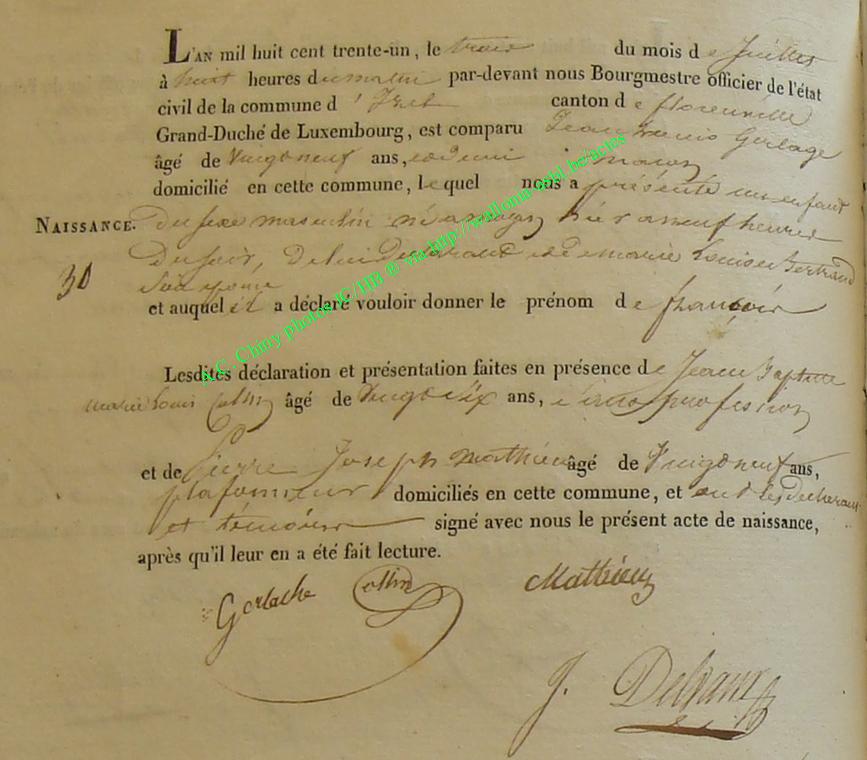 L'AN mil huit cent trente-un, le trois du mois de Juillet
à huit heures du matin par-devant nous Bourgmestre officier de l'état
civil de la commune d'Izel canton de florenville
Grand-Duché de Luxembourg, est comparu Jean Louis Gerlage
âgé de Vingtneuf ans,
domicilié en cette commune, lequel nous a présenté un enfant
NAISSANCE.
du sexe masculin né hier a neuf heures
30
du soir, de lui declarant et de marie Louise Bertrand
Son
et auquel il a déclaré vouloir donner le prénom de françois
Lesdites déclaration et présentation faites en présence de Jean Baptiste
marie Louis Collin âgé de Vingtsix ans, profession
et de Pierre Joseph Mathieu âgé de Vingtneuf ans,
plafonneur domiciliés en cette commune, et ont les declarant
et témoins signé avec nous le présent acte de naissance,
après qu'il leur en a été fait lecture.
Gerlache Collin Mathieu
J.
A.C. Chiny photos JG/HB ® via http://wallonia-asbl.be/actes